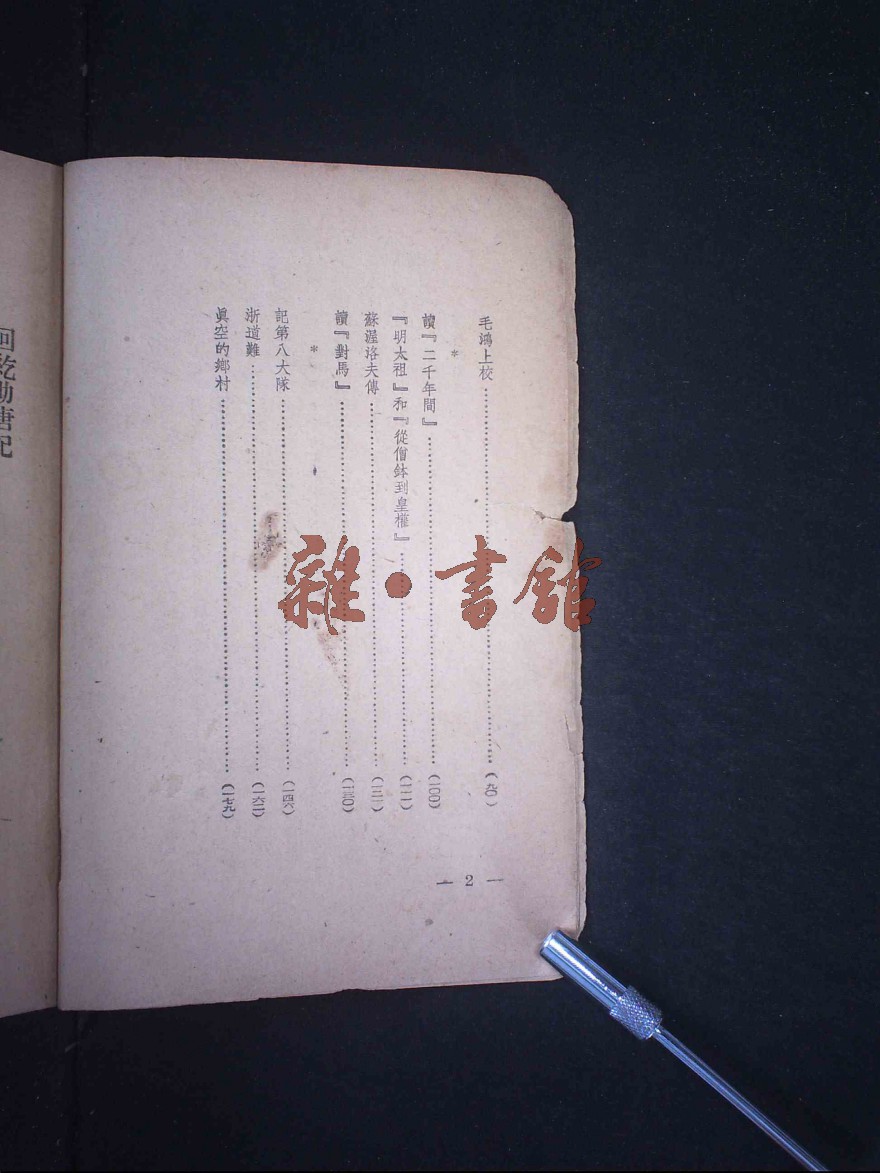 毛鴻上校……（九〇）
*
讀『二千年間』……（一〇〇）
『明太祖』和『從僧鉢到皇權』……（一一一）
蘇渥洛夫傳……（一二一）
讀『對馬』……（一三〇）
*
記第八大隊……（一四六）
浙道難……（一六二）
眞空的鄉村……（一七九）
— 2 —
雜·書館